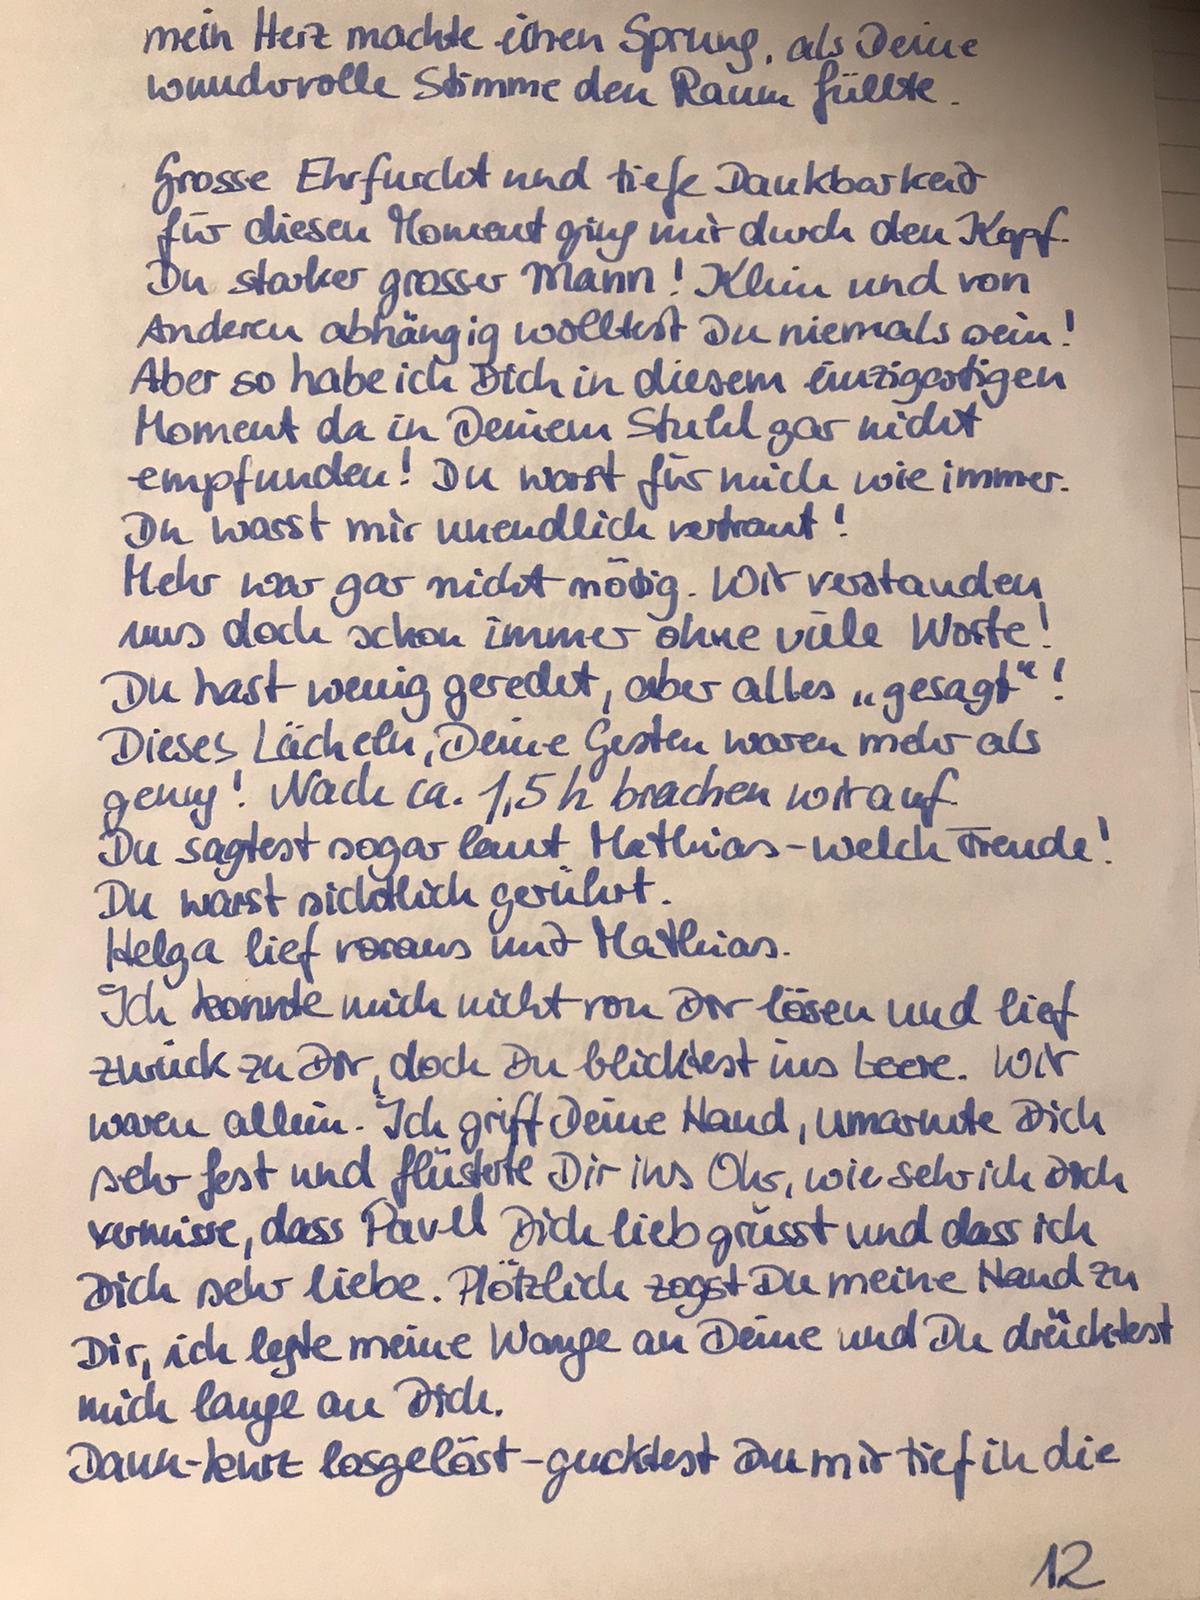 mein Herz machte einen Sprung, als Deine
wundervolle Stimme den Raum füllte.
Grosse Ehrfurcht und tiefe Dankbarkeit
für diesen Moment ging mir durch den Kopf.
Du starker grosser Mann! Klein und von
Anderen abhängig wolltest Du niemals sein!
Aber so habe ich Dich in diesem einzigartigen
Moment da in Deinem Stuhl gar nicht
empfunden! Du warst für mich wie immer.
Du warst mir unendlich vertraut!
Mehr war gar nicht nötig. Wir verstanden
uns doch schon immer ohne viele Worte!
Du hast wenig geredet, aber alles „gesagt"!
Dieses Lächeln, Deine Gesten waren mehr als
genug! Nach ca. 1,5 h brachen wir auf.
Du sagtest sogar laut Mathias - welch Freude!
Du warst sichtlich gerührt.
Helga lief voraus mit Mathias.
Ich konnte mich nicht von Dir lösen und lief
zurück zu Dir, doch Du blicktest ins Leere. Wir
waren allein. Ich griff Deine Hand, umarmte Dich
sehr fest und flüsterte Dir ins Ohr, wie sehr ich Dich
vermisse, dass Pavel Dich lieb grüsst und dass ich
Dich sehr liebe. Plötzlich zogst Du meine Hand zu
Dir, ich legte meine Wange an Deine und Du drücktest
mich lange an Dich.
Dann - kurz losgelöst - gucktest Du mir tief in die
12